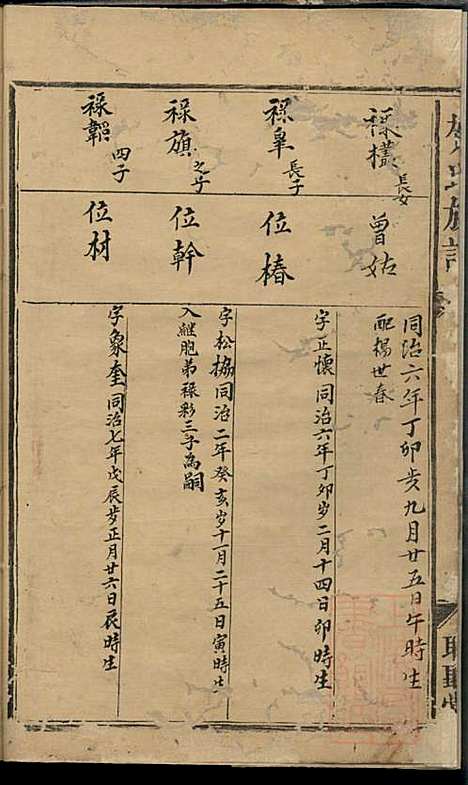 祿橫長女
曾姑
同治六年丁卯岁九月廿五日午時生
配楊世春
祿皐長子
位椿
字正懷同治六年丁卯岁二月十四日卯時生
祿旗之子
位幹
字松協同治二年癸亥岁十一月二十五日寅時生
入繼胞弟祿彩三子為嗣
祿韜四子
位材
字象奎同治七年戊辰岁正月廿六日辰時生
族譜